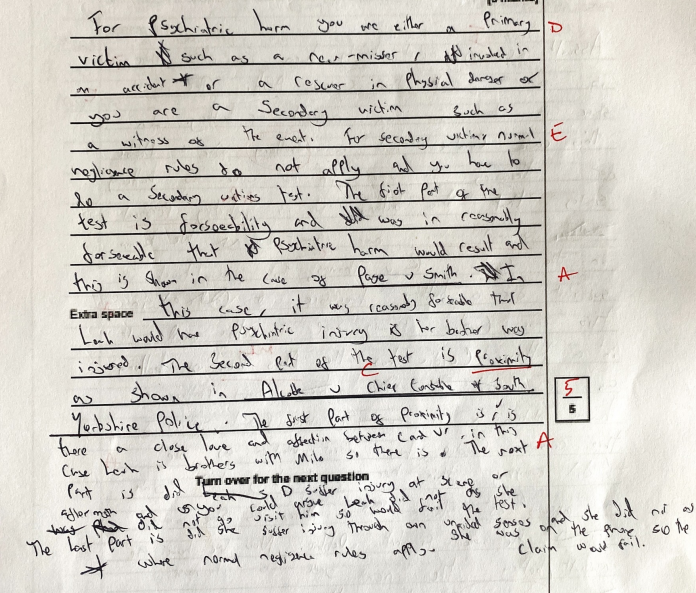 For Psychiatric harm you are either a Primary D
victim such as a near-misser, involved in
an accident * or a rescuer in Physical danger or
you are a Secondary victim such as
a witness of the event. For secondary victims normal E
negligence rules do not apply and you have to
do a Secondary victims test. The first part of the
test is forseeability and was in reasonally
forseeable that Psychiatric harm would result and
this is shown in the case of Page v Smith. In A
Extra space this case, it was reasonably forseeable that
Leah would have Psychiatric injury if her brother was
injured. The Second part of the test is Proximity
C
as shown in Alcock v Chief Constable of South 5
Yorkshire Police. The first part of Proximity is, is 5
there a close love and affection between C and V in this A
Case Leah is brothers with Milo so there is. The next
Turn over for the next question
Part is did D suffer injury at scene or
aftermath and you could argue Leah did not as she
did not go visit him so would fail the test.
The last part is did she suffer injury through own unaided senses and she did not as
she was on the phone so the
* where normal negligence rules apply. Claim would fail.